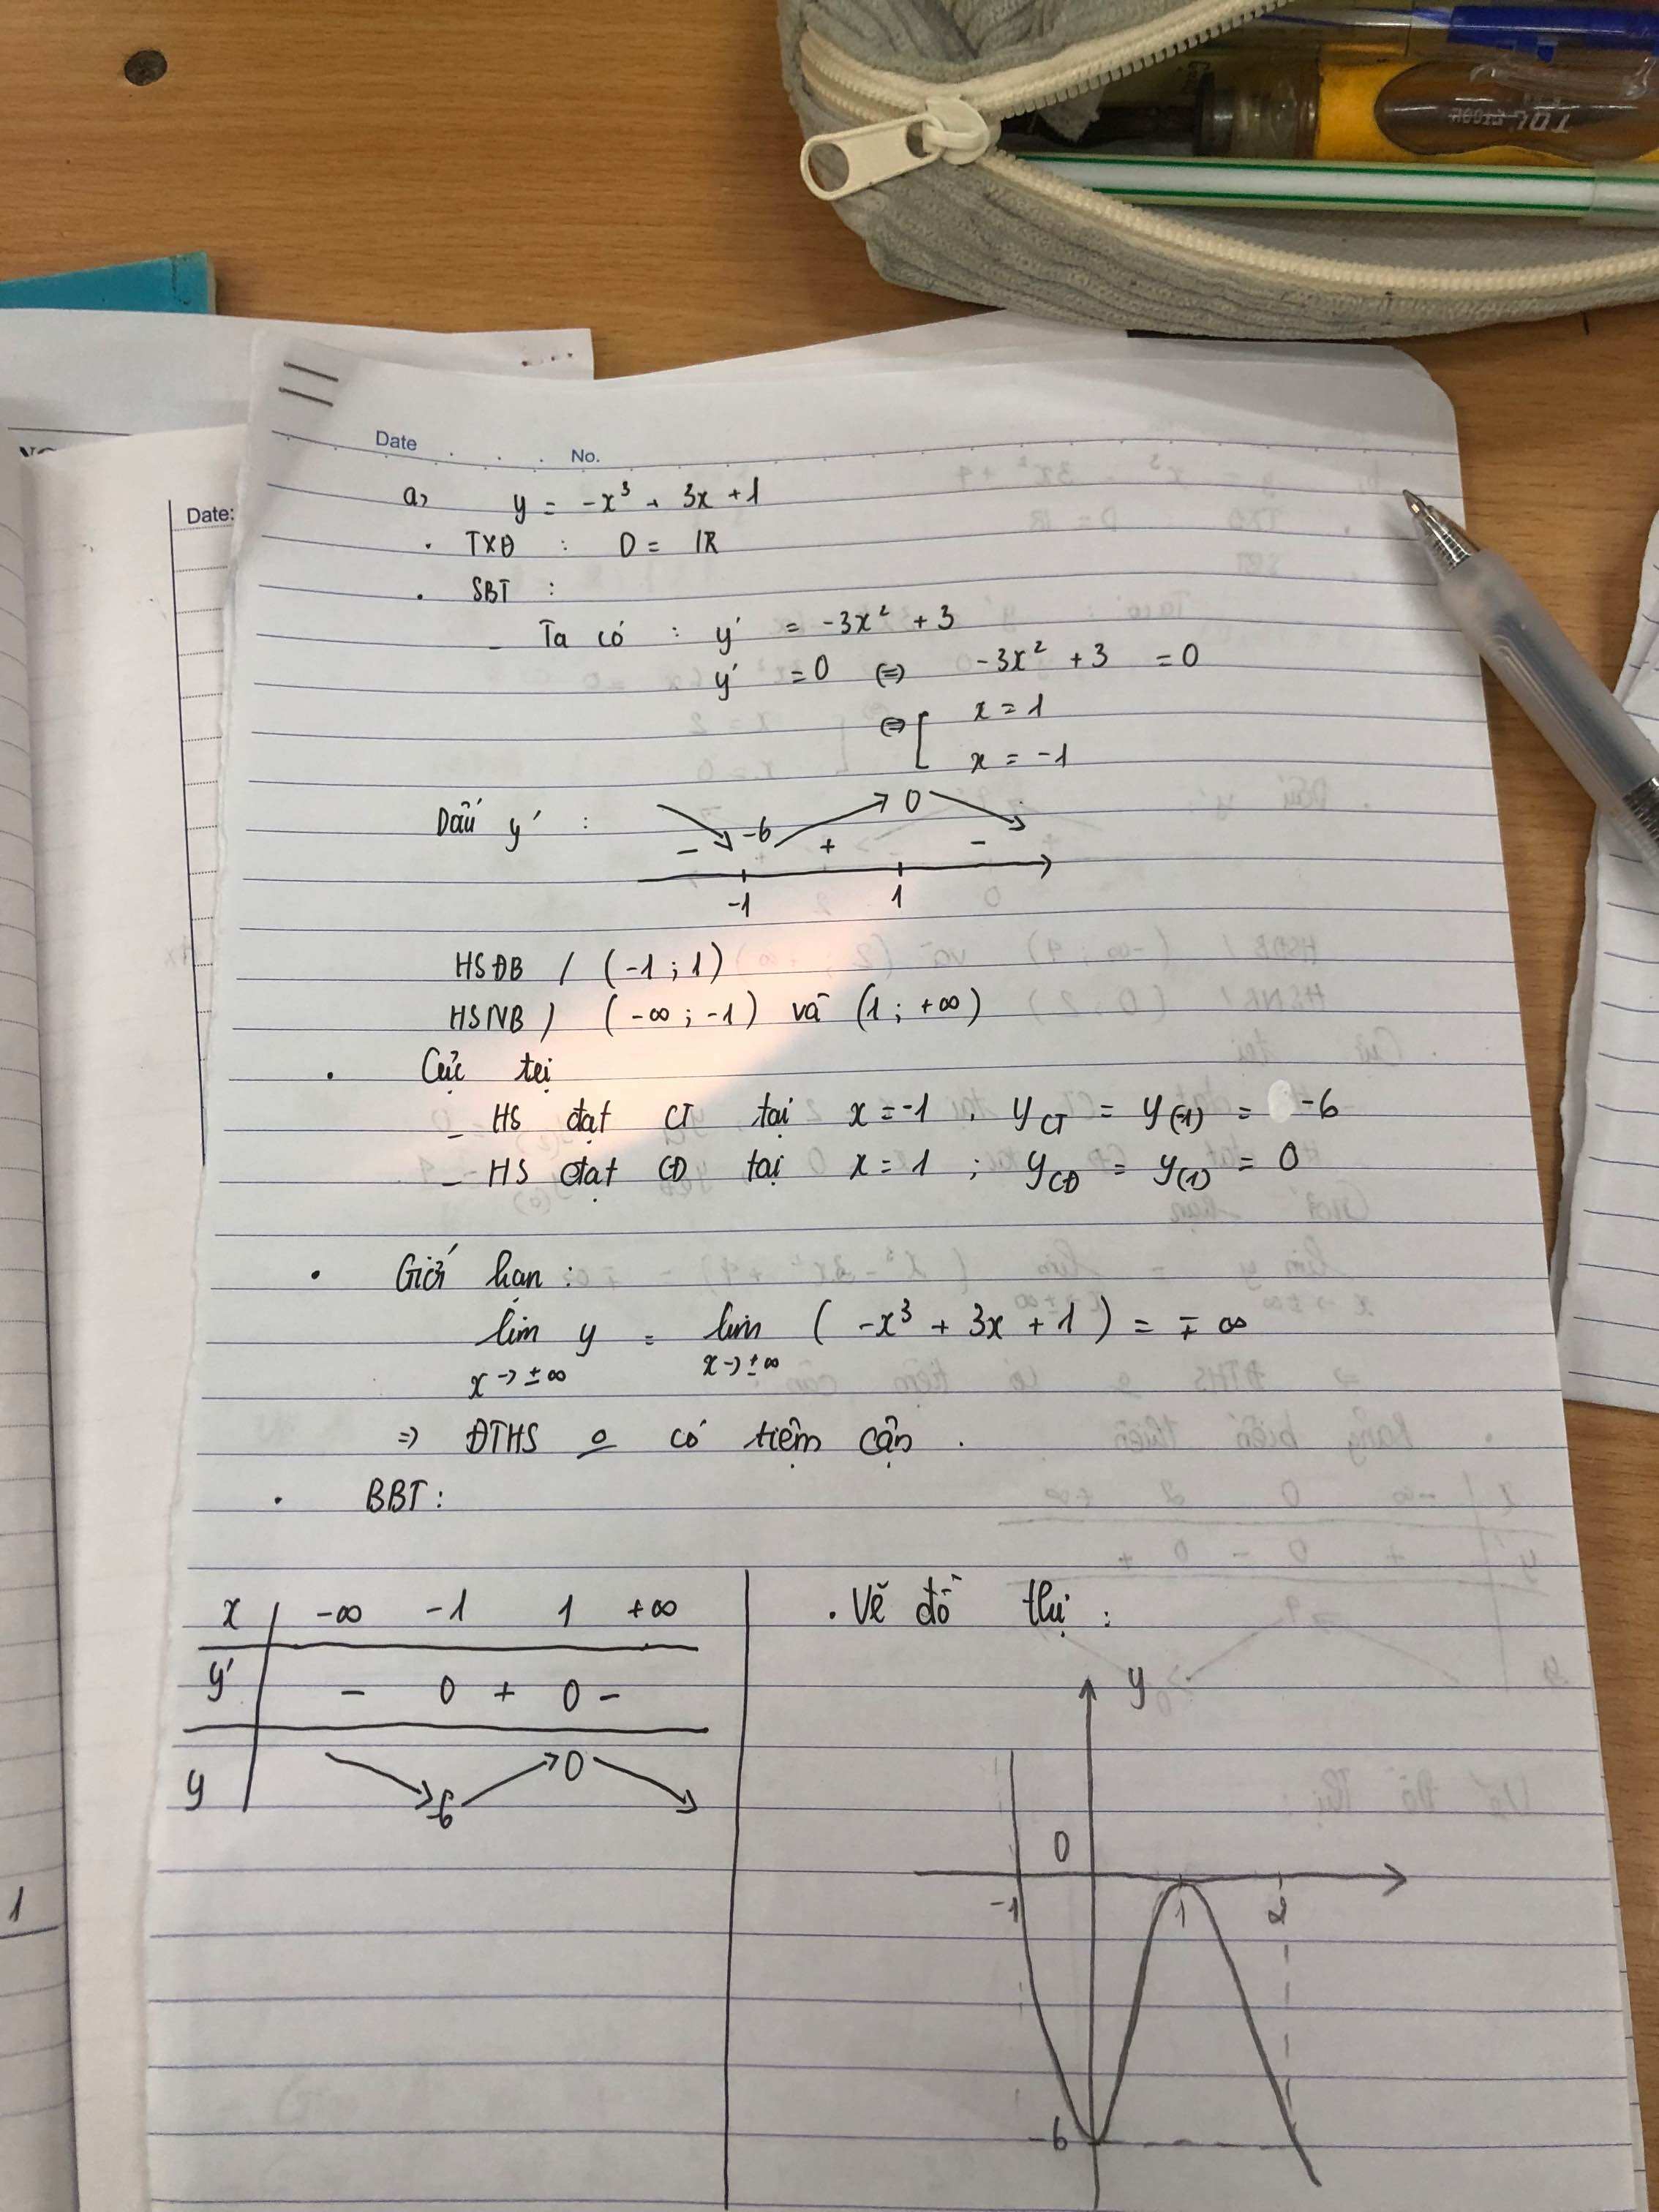 Date No.
a, y = -x³ + 3x + 1
. TXĐ : D = IR
. SBT :
- Ta có : y' = -3x² + 3
y' = 0 (=) -3x² + 3 = 0
(=) [ x = 1
x = -1
Dấu y' :
-6 0
- + -
-1 1
HSĐB / (-1 ; 1)
HSNB / (-∞ ; -1) và (1 ; +∞)
. Cực tẹị
- HS đạt CT tại x = -1 , y_CT = y_(-1) = -6
- HS đạt CĐ tại x = 1 ; y_CĐ = y_(1) = 0
. Giới hạn :
lim y = lim ( -x³ + 3x + 1 ) = ∓ ∞
x → ±∞ x → ±∞
=> ĐTHS o có tiệm cận .
. BBT :
x -∞ -1 1 +∞
y' - 0 + 0 -
y -6 0
. Vẽ đồ thị :
y
0
-1 1 2
-6
Date:
1
TOL